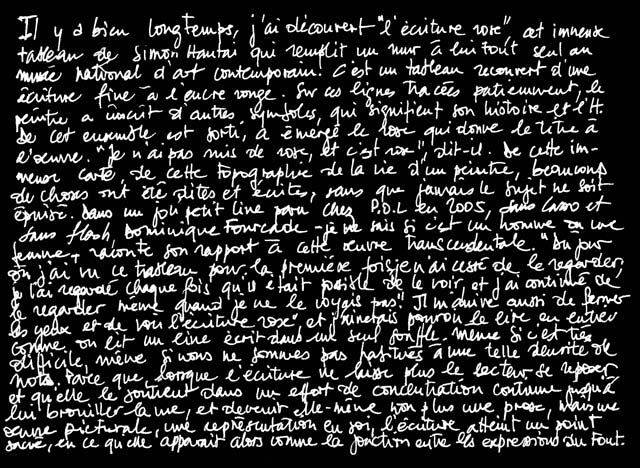 Il y a bien longtemps, j'ai découvert "l'écriture rose", cet immense
tableau de Simon Hantai qui remplit un mur à lui tout seul au
musée national d'art contemporain. C'est un tableau recouvert d'une
écriture fine à l'encre rouge. Sur ces lignes tracées patiemment, le
peintre a inscrit d'autres symboles, qui signifient son histoire et l'H.
De cet ensemble est sorti, a émergé le rose qui donne le titre à
l'œuvre. "Je n'ai pas mis de rose, et c'est rose", dit-il. De cette im-
mense carte, de cette topographie de la vie d'un peintre, beaucoup
de choses ont été dites et écrites, sans que jamais le sujet ne soit
épuisé. Dans un joli petit livre paru chez P.O.L en 2005, sans lasso et
sans flash, Dominique Fourcade - je ne sais si c'est un homme ou une
femme -, raconte son rapport à cette œuvre transcendentale. "Du jour
où j'ai vu ce tableau pour la première fois je n'ai cessé de le regarder,
je l'ai regardé chaque fois qu'il était possible de le voir, et j'ai continué de
le regarder même quand je ne le voyais pas". Il m'arrive aussi de fermer
les yeux et de voir l'écriture rose" et j'aimerais pouvoir le lire en entier
comme on lit un livre écrit dans un seul souffle. même si c'est très
difficile, même si nous ne sommes pas habitués à une telle densité de
mots. Parce que, lorsque l'écriture ne laisse plus le lecteur se reposer
et qu'elle le soutient dans un effort de concentration continue jusqu'à
lui brouiller la vue, et devenir elle-même non plus une prose, mais une
œuvre picturale, une représentation en soi, l'écriture atteint un point
sacré, en ce qu'elle apparait alors comme la fonction entre les expressions du tout.